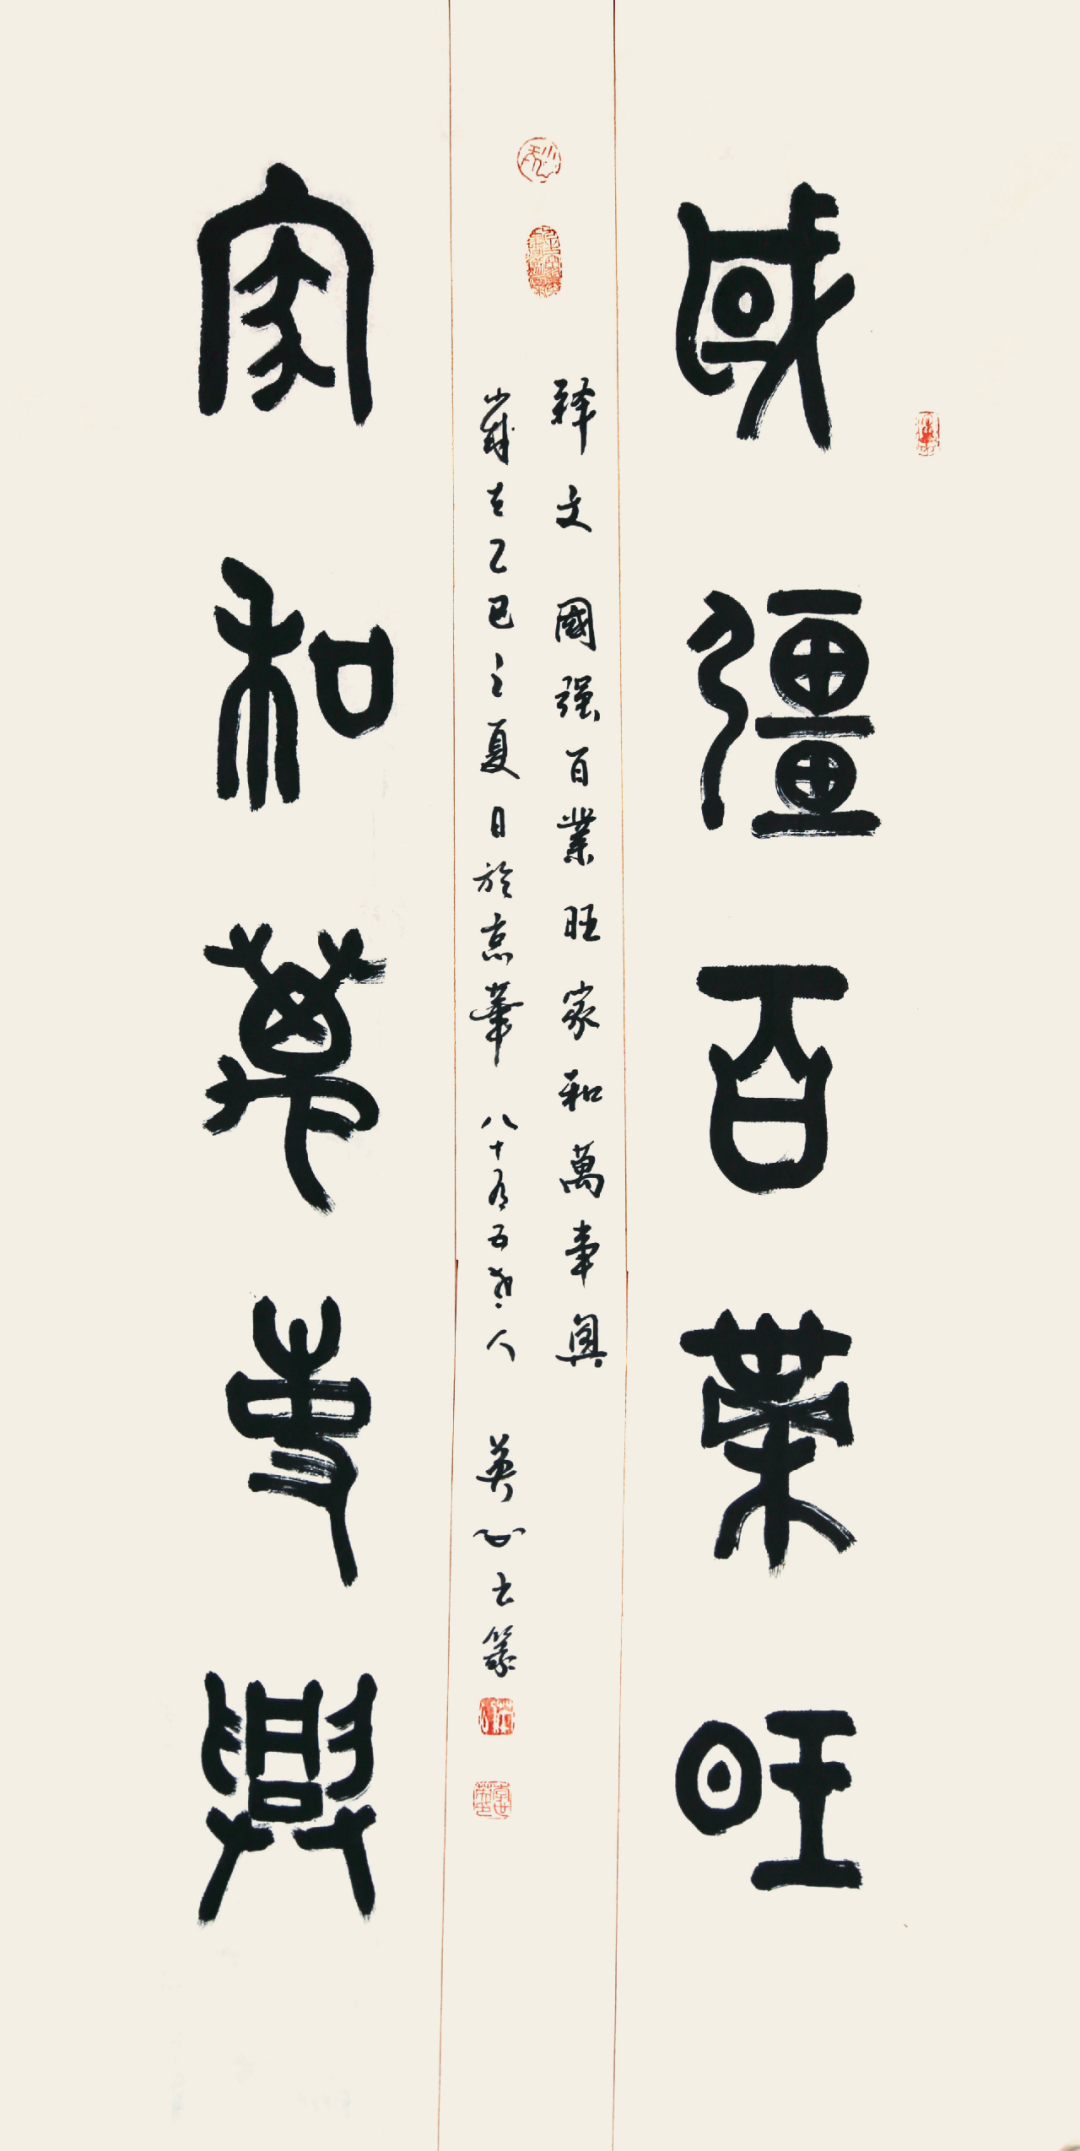 國彊百業旺
释文 國强百業旺家和萬事興
歲在乙巳之夏日於京華 八十有五老人 英心書篆
家和萬事興